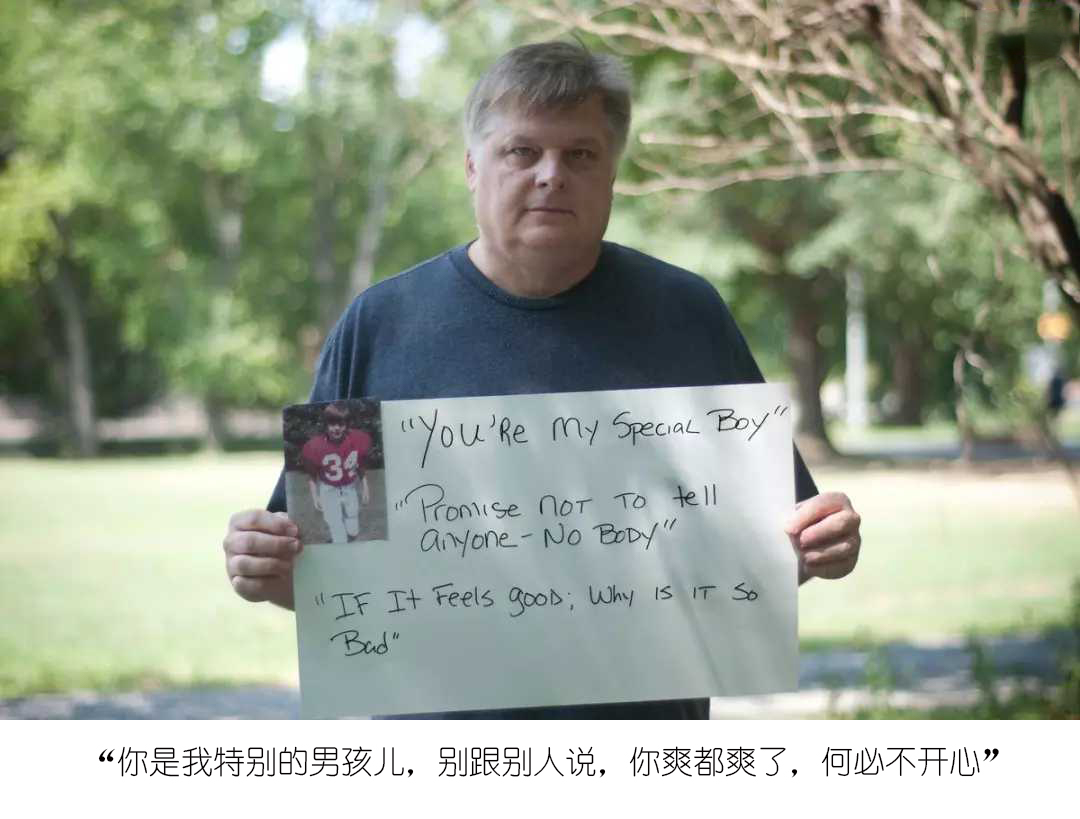 34
"You're My Special Boy"
"Promise NOT TO tell
anyone - No Body"
"IF It Feels good; Why Is IT So
Bad"
“你是我特别的男孩儿，别跟别人说，你爽都爽了，何必不开心”